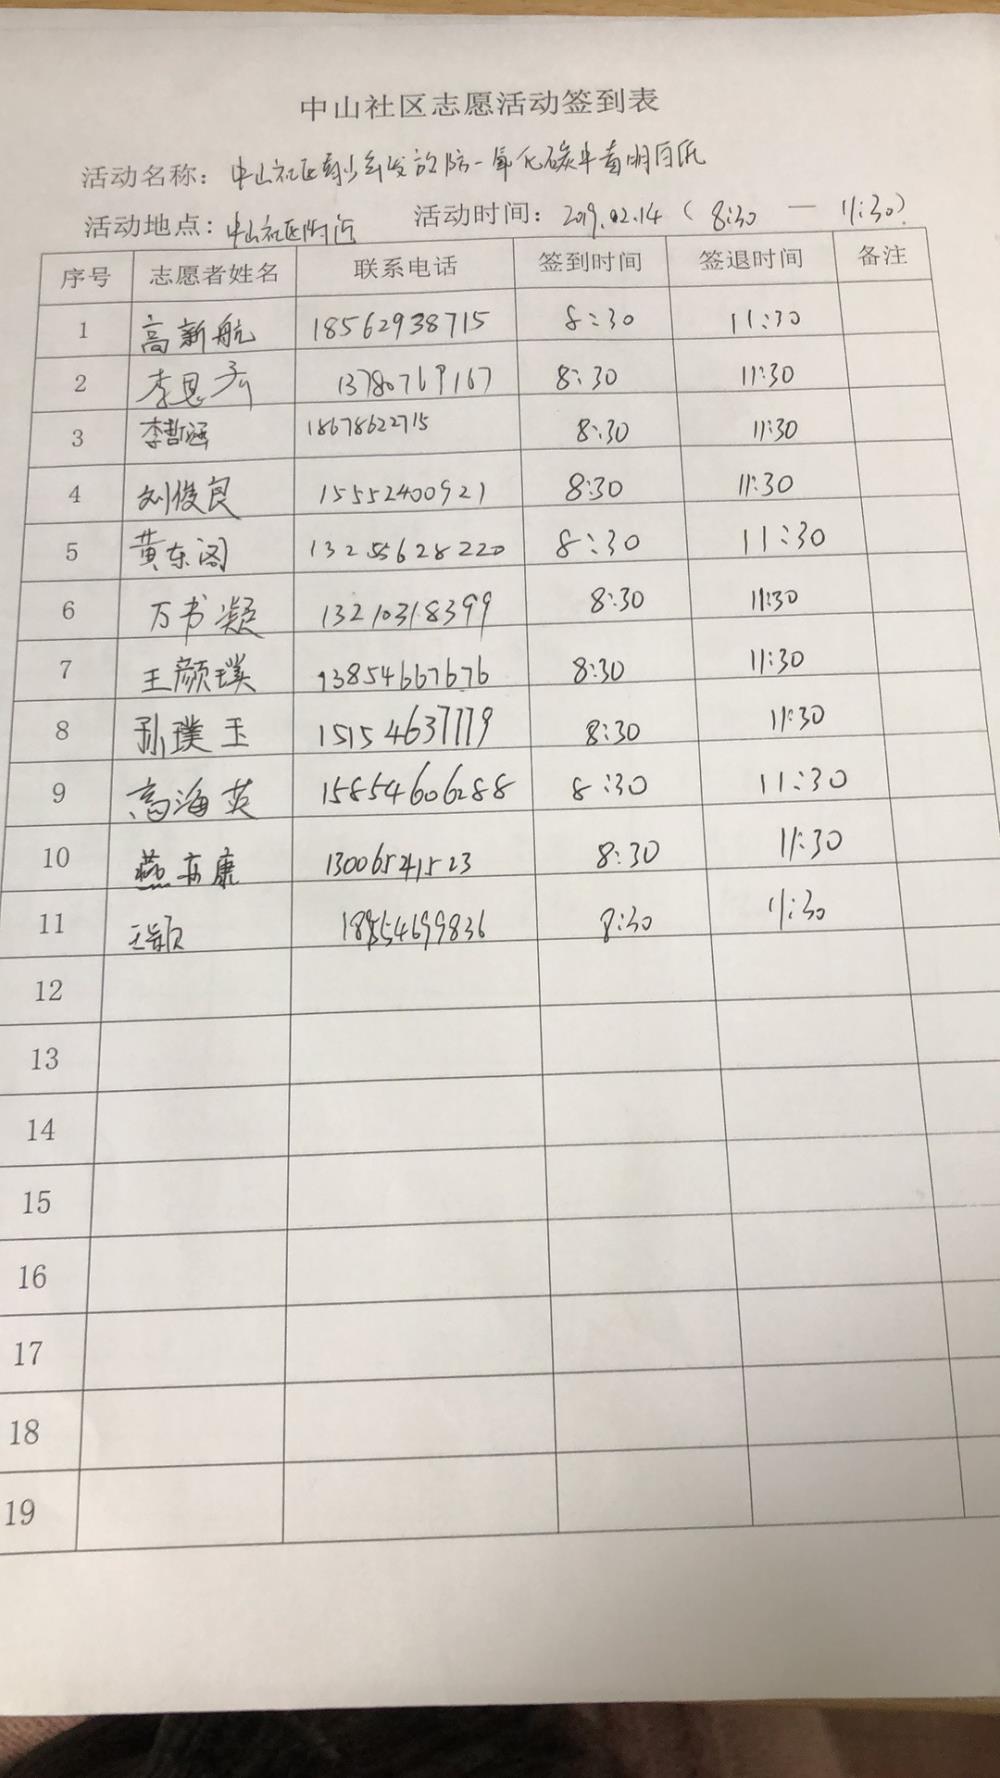 中山社区志愿活动签到表
活动名称: 中山社区青少年发放防一氧化碳中毒明白纸
活动地点: 中山社区附近 活动时间: 2019.02.14 ( 8:30 — 11:30)
序号 志愿者姓名 联系电话 签到时间 签退时间 备注
1 高新航 18562938715 8:30 11:30
2 李恩 13780769167 8:30 11:30
3 李哲涵 18678622715 8:30 11:30
4 刘俊良 15552400921 8:30 11:30
5 黄东阁 13255628220 8:30 11:30
6 万书凝 13210318399 8:30 11:30
7 王颜璞 13854667676 8:30 11:30
8 孙璞玉 15154637779 8:30 11:30
9 高海英 15854606288 8:30 11:30
10 燕亦康 13006541523 8:30 11:30
11 王 8:30 11:30
12
13
14
15
16
17
18
19